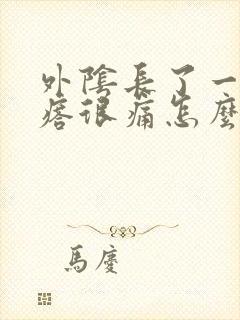 外陰長了一
瘩很痛怎麼
馬慶